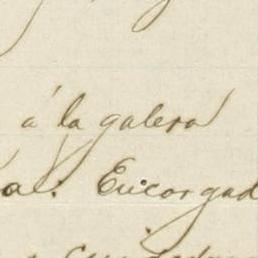 á la galera
a. Encorgad